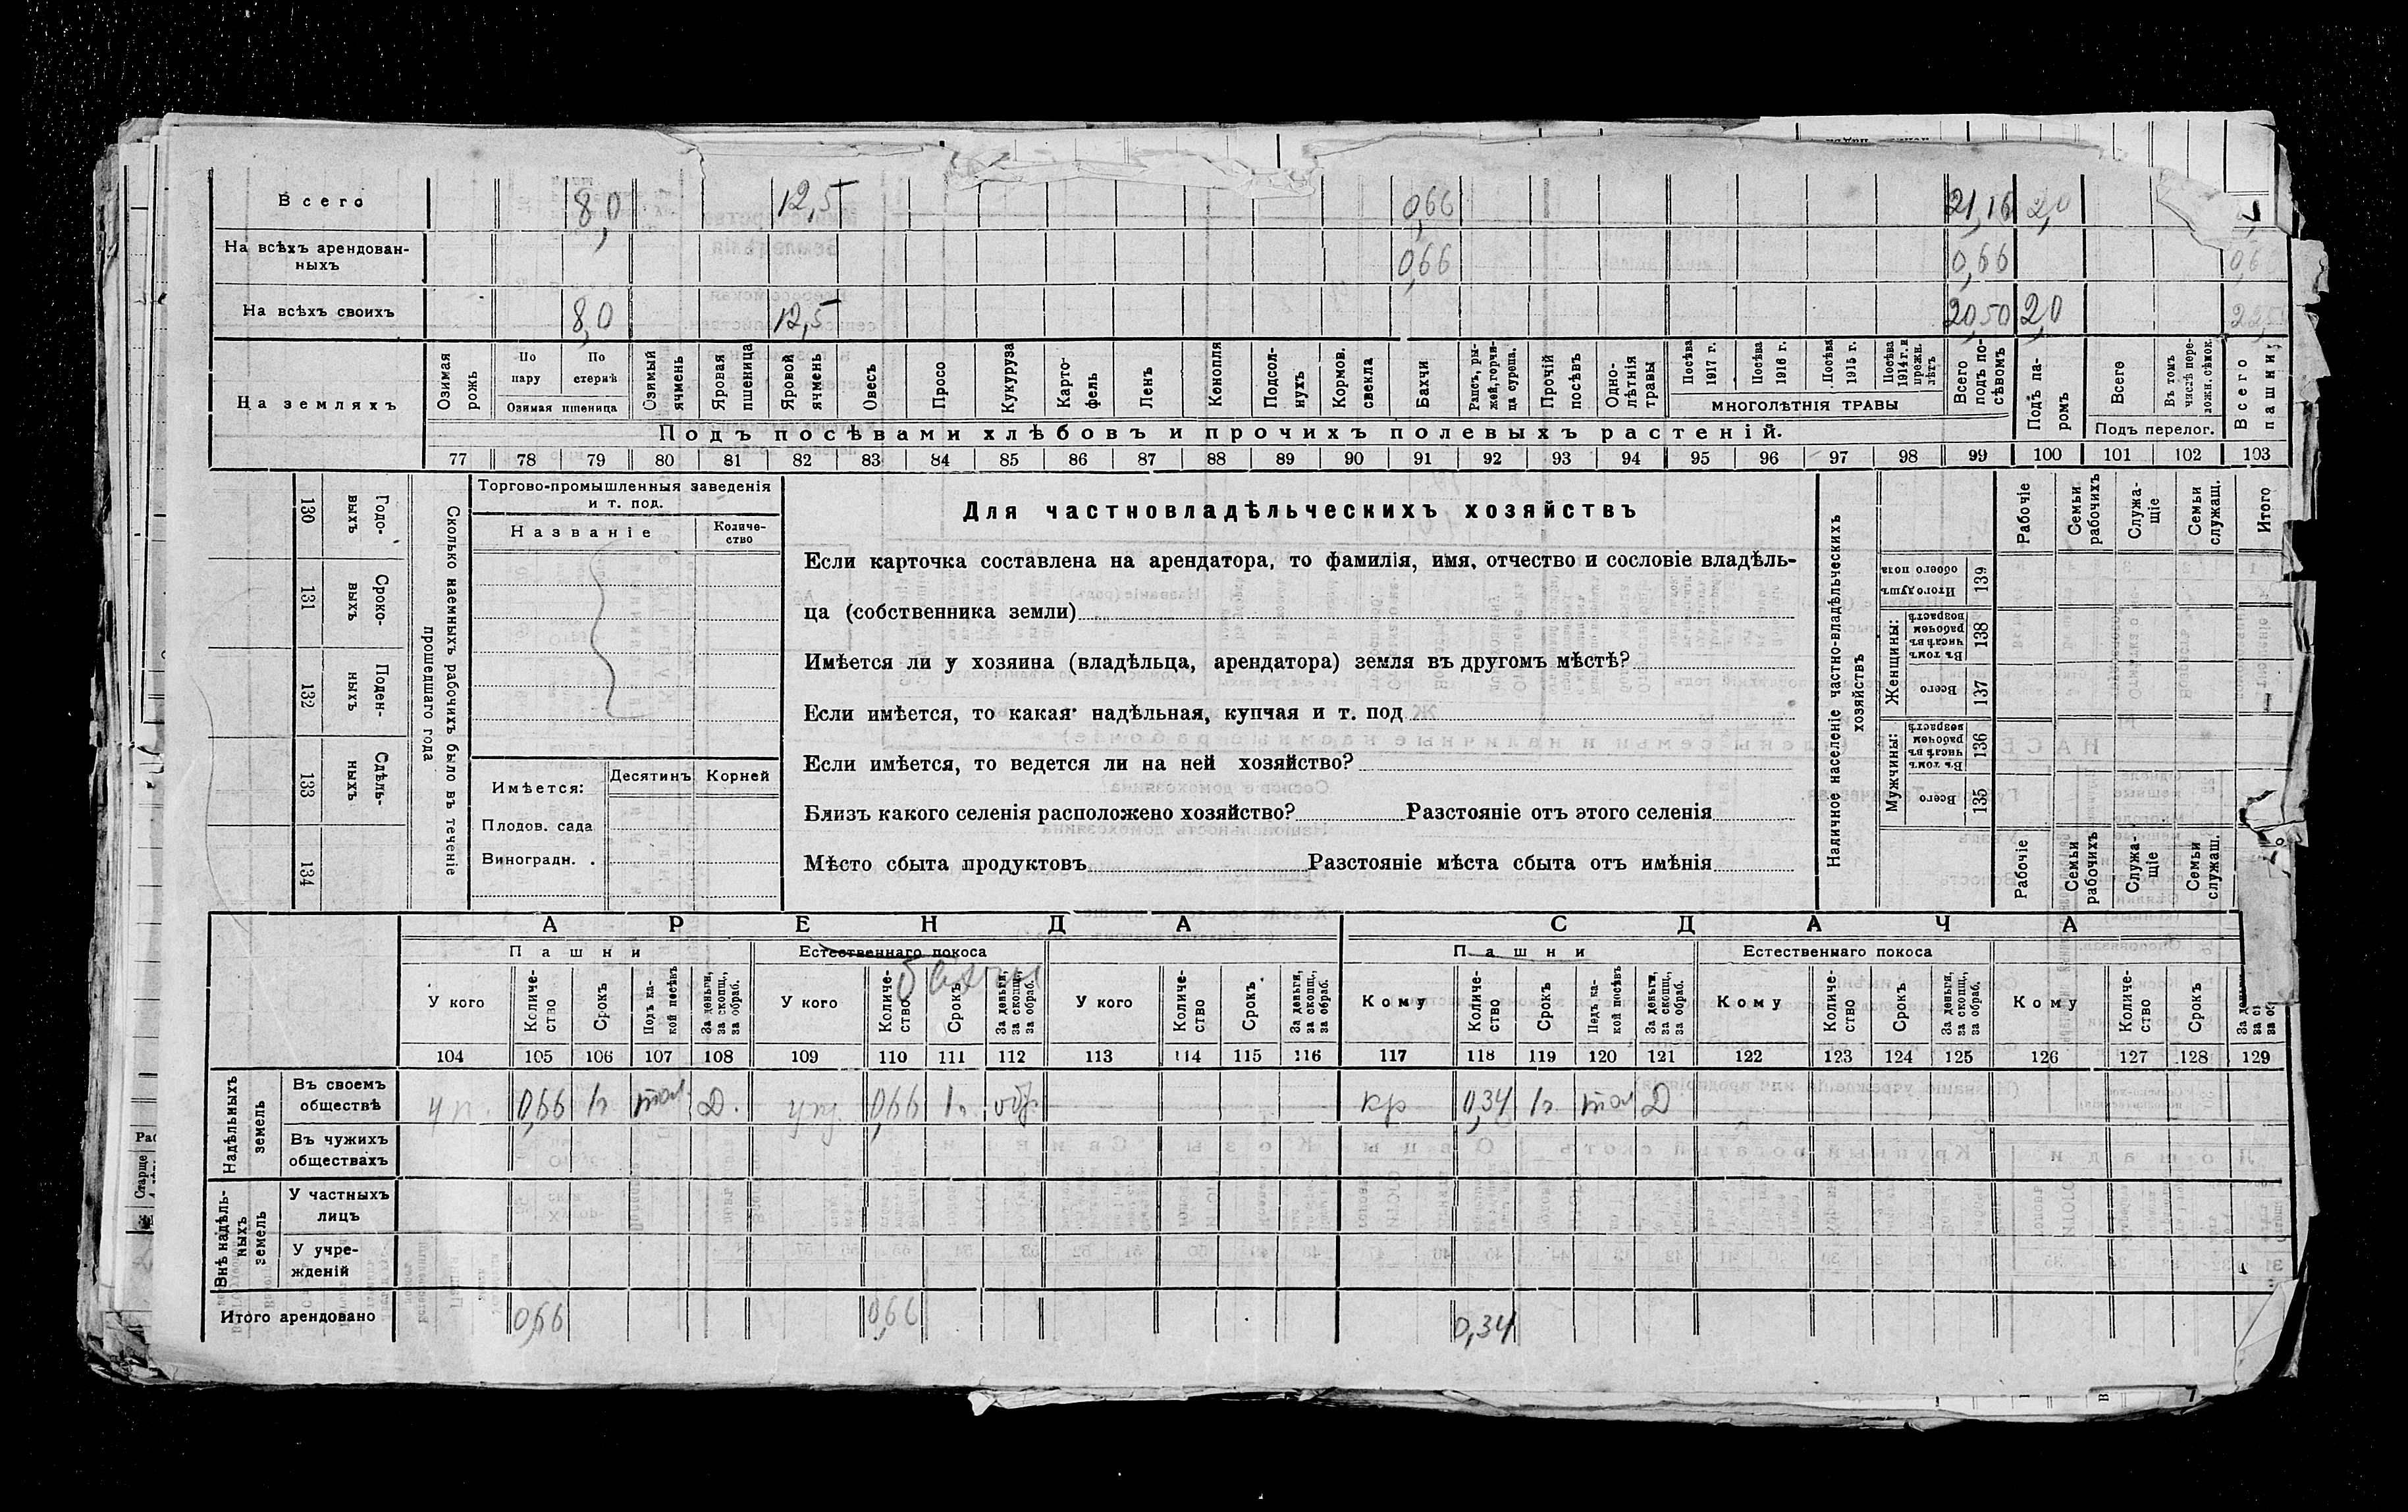 Всего 8,0 12,5 0,66 21,16 2,0
На всѣхъ арендован-
ныхъ 0,66 0,66
На всѣхъ своихъ 8,0 12,5 20,50 2,0
На земляхъ
Озимая рожь
По пару
По стернѣ
Озимая пшеница
Озимый ячмень
Яровая пшеница
Яровой ячмень
Овесъ
Просо
Кукуруза
Карто-
фель
Ленъ
Конопля
Подсол-
нухъ
Кормов. свекла
Бахчи
Рапсъ, ры-
жей, горчи-
ца суреша.
Прочій посѣвъ
Одно-
лѣтнія травы
Посѣва 1917 г.
Посѣва 1916 г.
Посѣва 1915 г.
Посѣва 1914 г. и прежн. лѣтъ
МНОГОЛѢТНІЯ ТРАВЫ
Всего подъ по-
сѣвомъ
Подъ па-
ромъ
Всего
Въ томъ числѣ пере-
ложн. сѣнок.
Подъ перелог.
Всего пашни
Подъ посѣвами хлѣбовъ и прочихъ полевыхъ растеній.
77 78 79 80 81 82 83 84 85 86 87 88 89 90 91 92 93 94 95 96 97 98 99 100 101 102 103
130 Годо-
выхъ
131 Сроко-
выхъ
132 Поден-
ныхъ
133 Сдѣль-
ныхъ
134
Сколько наемныхъ рабочихъ было въ теченіе
прошедшаго года
Торгово-промышленныя заведенія
и т. под.
Названіе
Количе-
ство
Имѣется: Десятинъ Корней
Плодов. сада
Виноградн. .
Для частновладѣльческихъ хозяйствъ
Если карточка составлена на арендатора, то фамилія, имя, отчество и сословіе владѣль-
ца (собственника земли)
Имѣется ли у хозяина (владѣльца, арендатора) земля въ другомъ мѣстѣ?
Если имѣется, то какая надѣльная, купчая и т. под
Если имѣется, то ведется ли на ней хозяйство?
Близъ какого селенія расположено хозяйство? Разстояніе отъ этого селенія
Мѣсто сбыта продуктовъ Разстояніе мѣста сбыта отъ имѣнія
Наличное населеніе частно-владѣльческихъ
хозяйствъ
Рабочіе
Семьи рабочихъ
Служа-
щіе
Семьи служащ.
Итого
Итого душъ обоего пола 139
Женщины:
Въ томъ числѣ въ рабочем возрастѣ 138
Всего 137
Мужчины:
Въ томъ числѣ въ рабочем возрастѣ 136
Всего 135
Рабочіе
Семьи рабочихъ
Служа-
щіе
Семьи служащ.
АРЕНДА СДАЧА
Пашни Естественнаго покоса Пашни Естественнаго покоса
бахчи
У кого
Количе-
ство
Срокъ
Подъ ка-
кой посѣвъ
За деньги, за скопщ., за обраб.
У кого
Количе-
ство
Срокъ
За деньги, за скопщ., за обраб.
У кого
Количе-
ство
Срокъ
За деньги, за скопщ., за обраб.
Кому
Количе-
ство
Срокъ
Подъ ка-
кой посѣвъ
За деньги, за скопщ., за обраб.
Кому
Количе-
ство
Срокъ
За деньги, за скопщ., за обраб.
Кому
Количе-
ство
Срокъ
104 105 106 107 108 109 110 111 112 113 114 115 116 117 118 119 120 121 122 123 124 125 126 127 128 129
Надѣльныхъ
земель
Въ своемъ
обществѣ 0,66 1г. Д. 0,66 1г. кр 0,34 1г. Д
Въ чужихъ
обществахъ
Внѣ надѣль-
ныхъ
земель
У частныхъ
лицъ
У учре-
жденій
Итого арендовано 0,66 0,66 0,34